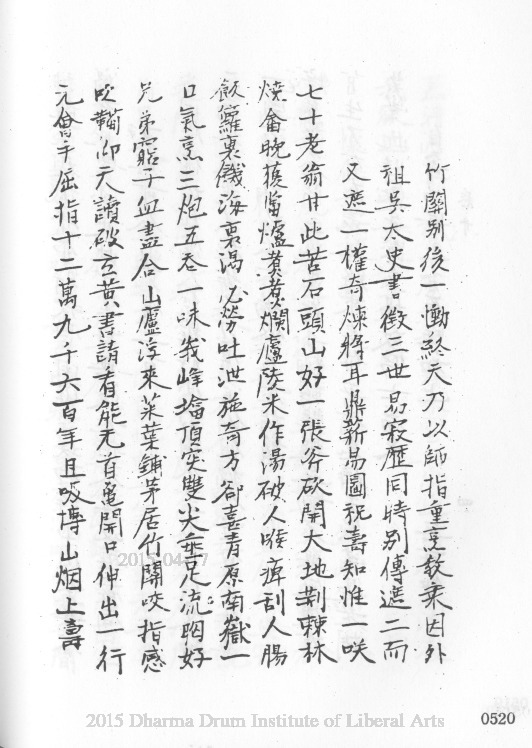 竹關別後一慟終天乃以師指重烹教乘因外
祖吳太史書徵三世易寂歷同時別傳遮二而
又遮一權奇煉將耳鼎薪易圖祝壽知惟一咲
七十老翁甘此苦石頭山好一張斧砍開大地荆棘林
燒畬晚穫當爐煑煑爛廬陵米作湯破人喉痺刮人腸
飯籮裏餓海裏渴必勞吐泄施奇方卻喜青原南嶽一
口氣烹三炮五吞一味峩峰墖頂突雙尖垂足流
兄弟窮子血盡合山廬淳來菜葉鋪茅居竹關咬指感
吹鞴仰天讀破玄黃書請看能无首黽開口伸出一行
元會手屈指十二萬九千六百年且吸博山烟上壽
2015 Dharma Drum Institute of Liberal Arts
0520